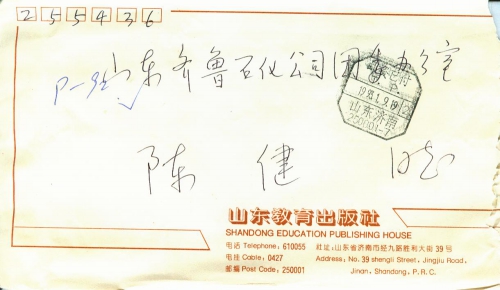 255436
山东齐鲁石化公司团委办公室
P-92
陈 健
山东济南
250001-7
山东教育出版社
SHANDONG EDUCATION PUBLISHING HOUSE
电话 Telephone: 610055 社址:山东省济南市经九路胜利大街 39 号
电挂 Cable: 0427 Address: No. 39 shengli Street, Jingjiu Road,
邮编 Post Code: 250001 Jinan, Shandong, P. R. C.